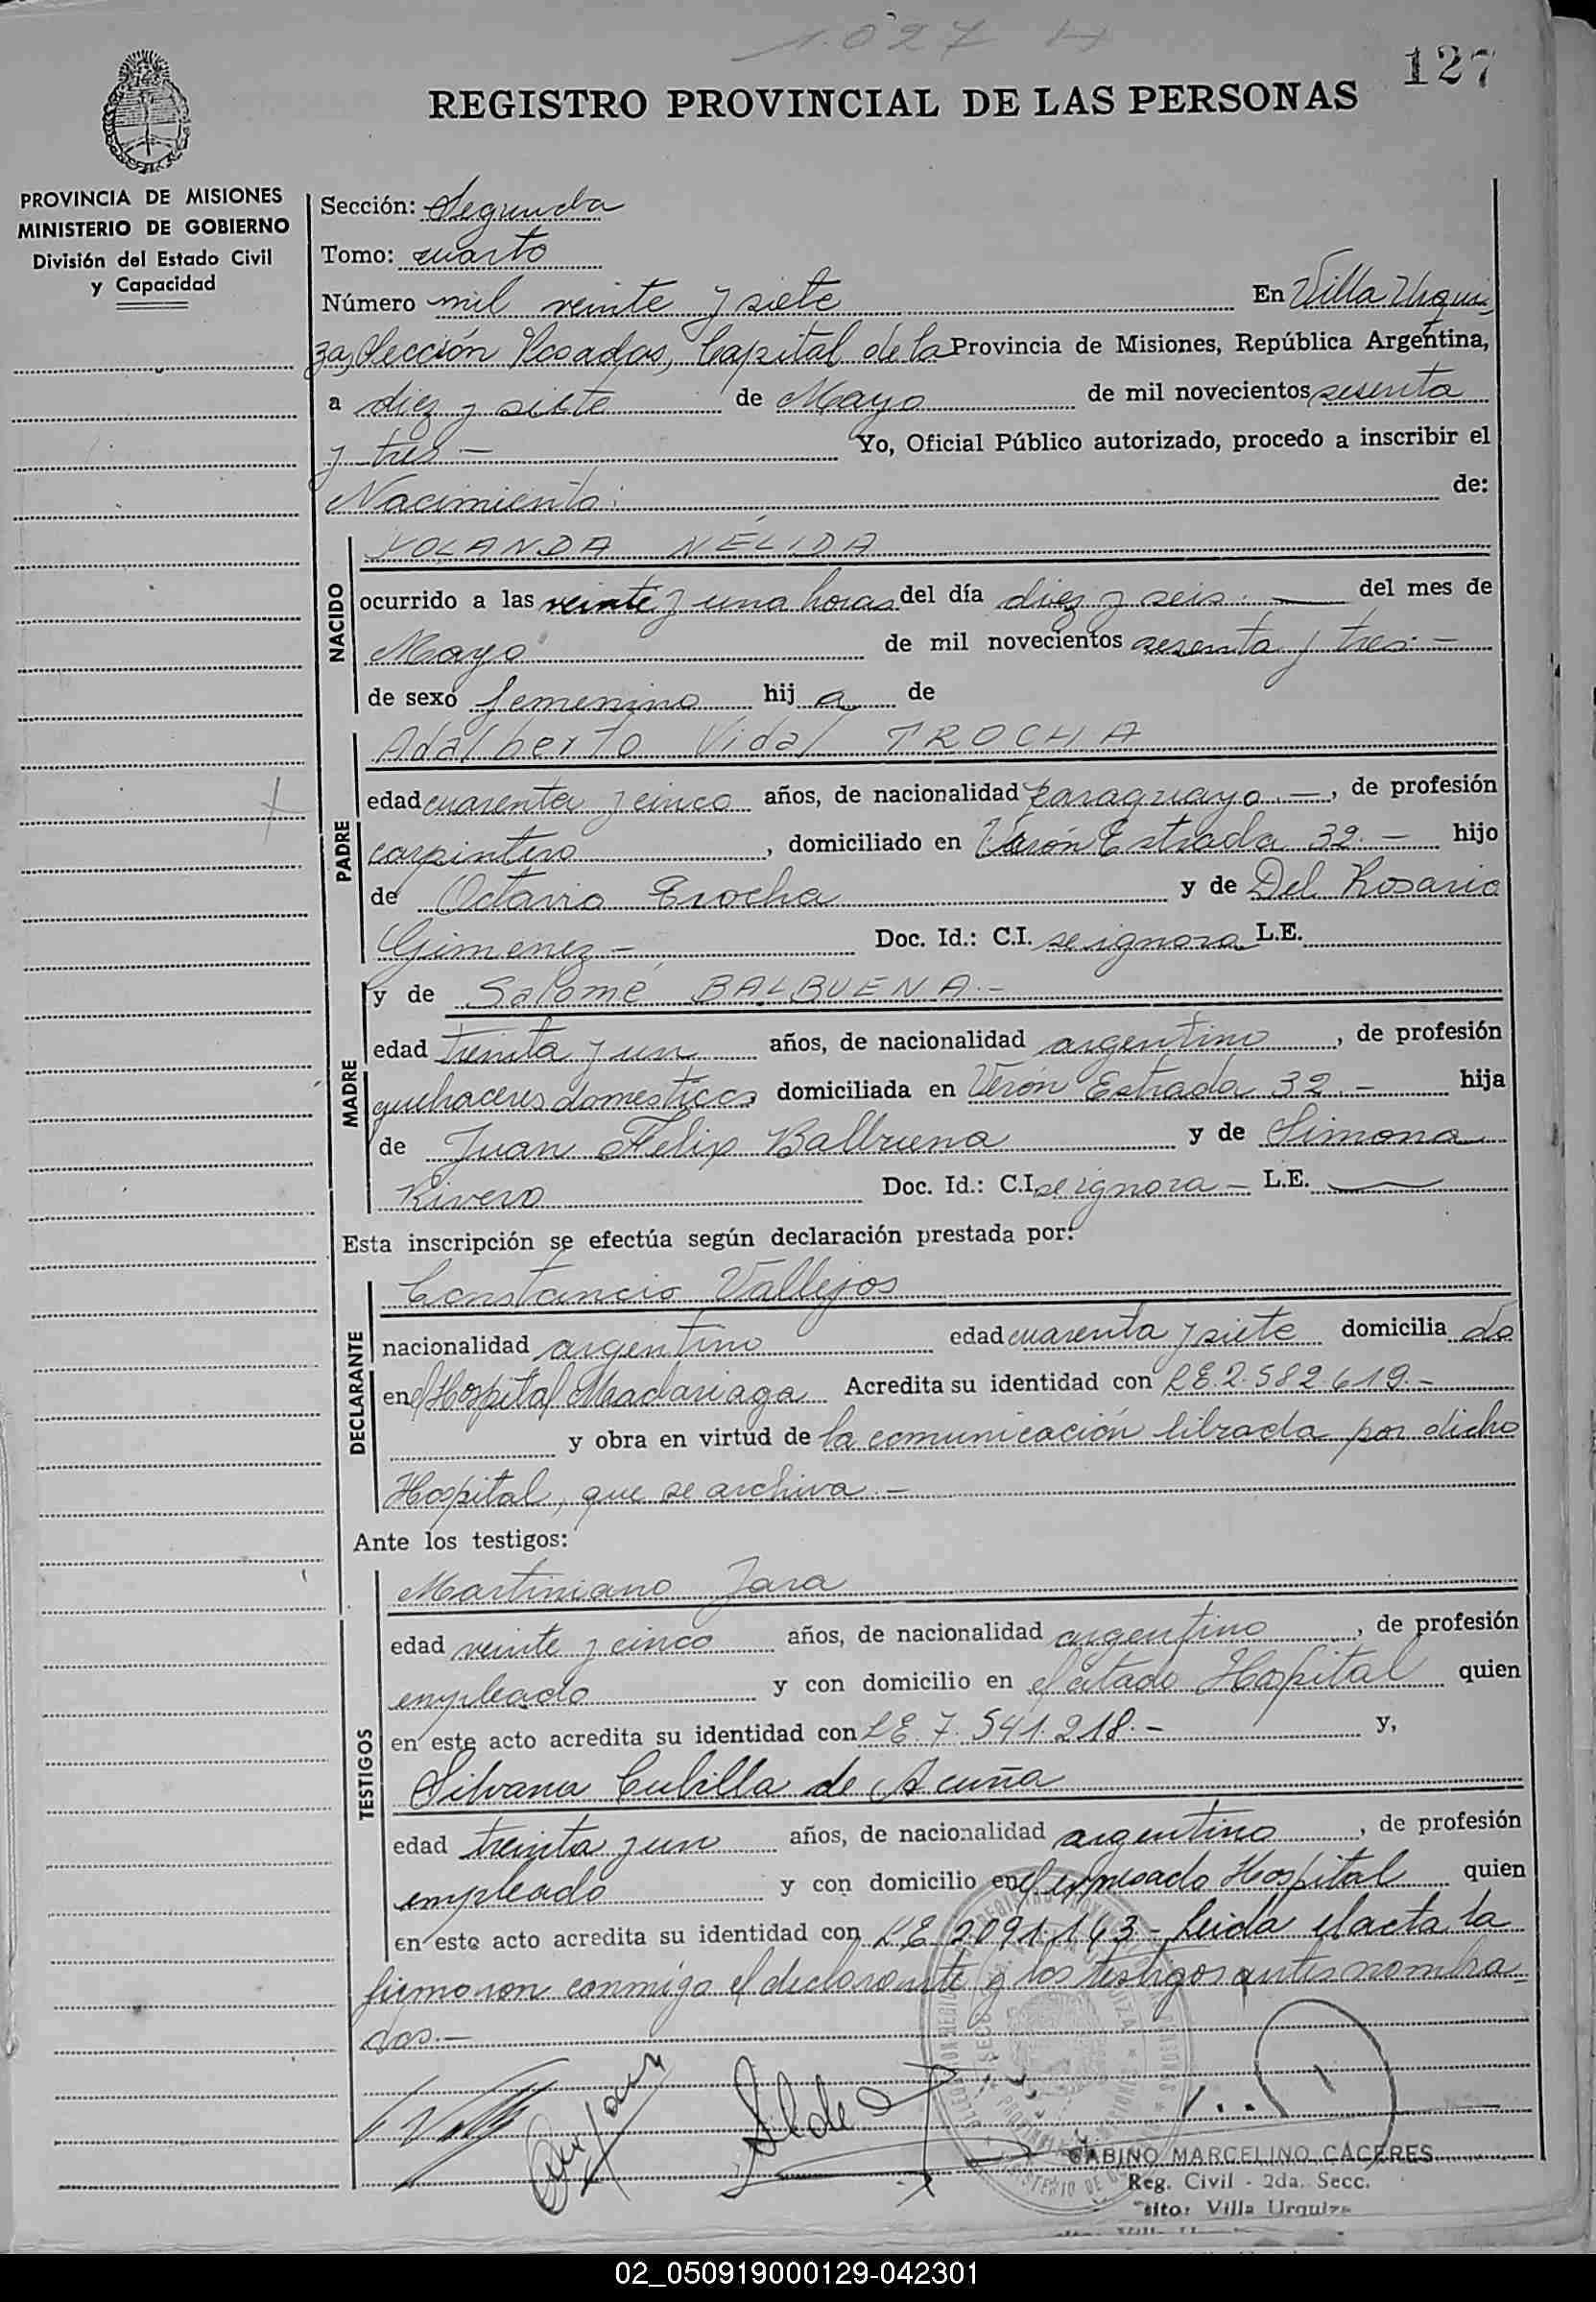 1.027 H
127
REGISTRO PROVINCIAL DE LAS PERSONAS
PROVINCIA DE MISIONES
MINISTERIO DE GOBIERNO
División del Estado Civil
y Capacidad
Sección: Segunda
Tomo: cuarto
Número mil veinte y siete En Villa Urqui-
za, Sección Posadas, Capital de la Provincia de Misiones, República Argentina,
a diez y siete de Mayo de mil novecientos sesenta
y tres — Yo, Oficial Público autorizado, procedo a inscribir el
Nacimiento: de:
NACIDO
YOLANDA NÉLIDA
ocurrido a las veinte y una horas del día diez y seis. — del mes de
Mayo de mil novecientos sesenta y tres. —
de sexo femenino hij a de
PADRE
Adalberto Vidal TROCHA
edad cuarenta y cinco años, de nacionalidad paraguayo. —, de profesión
carpintero, domiciliado en Verón Estrada 32. — hijo
de Octavio Trocha y de Del Rosario
Gimenez — Doc. Id.: C.I. se ignora L.E.
MADRE
y de Salomé BALBUENA. —
edad treinta y un años, de nacionalidad argentino, de profesión
quehaceres domesticos domiciliada en Verón Estrada 32. — hija
de Juan Felix Balbuena y de Simona
Rivero Doc. Id.: C.I. se ignora — L.E. —
Esta inscripción se efectúa según declaración prestada por:
DECLARANTE
Constancio Vallejos
nacionalidad argentino edad cuarenta y siete domicilia do
en el Hospital Madariaga Acredita su identidad con L.E. 2.582.619. —
y obra en virtud de la comunicación librada por dicho
Hospital, que se archiva. —
Ante los testigos:
TESTIGOS
Martiniano Jara
edad veinte y cinco años, de nacionalidad argentino, de profesión
empleado y con domicilio en el citado Hospital quien
en este acto acredita su identidad con L.E. 7.541.218. — y,
Silvana Cubilla de Acuña
edad treinta y un años, de nacionalidad argentino, de profesión
empleado y con domicilio en el expresado Hospital quien
en este acto acredita su identidad con L.E. 2.091.163 — Leida el acta la
firmaron conmigo el declarante y los testigos antes nombra-
dos. —
GABINO MARCELINO CACERES
Reg. Civil - 2da. Secc.
Villa Urquiza
02_050919000129-042301